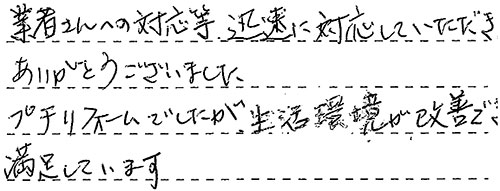 業者さんへの対応等 迅速に対応していただき
ありがとうございました
プチリフォームでしたが、生活環境が改善でき
満足しています